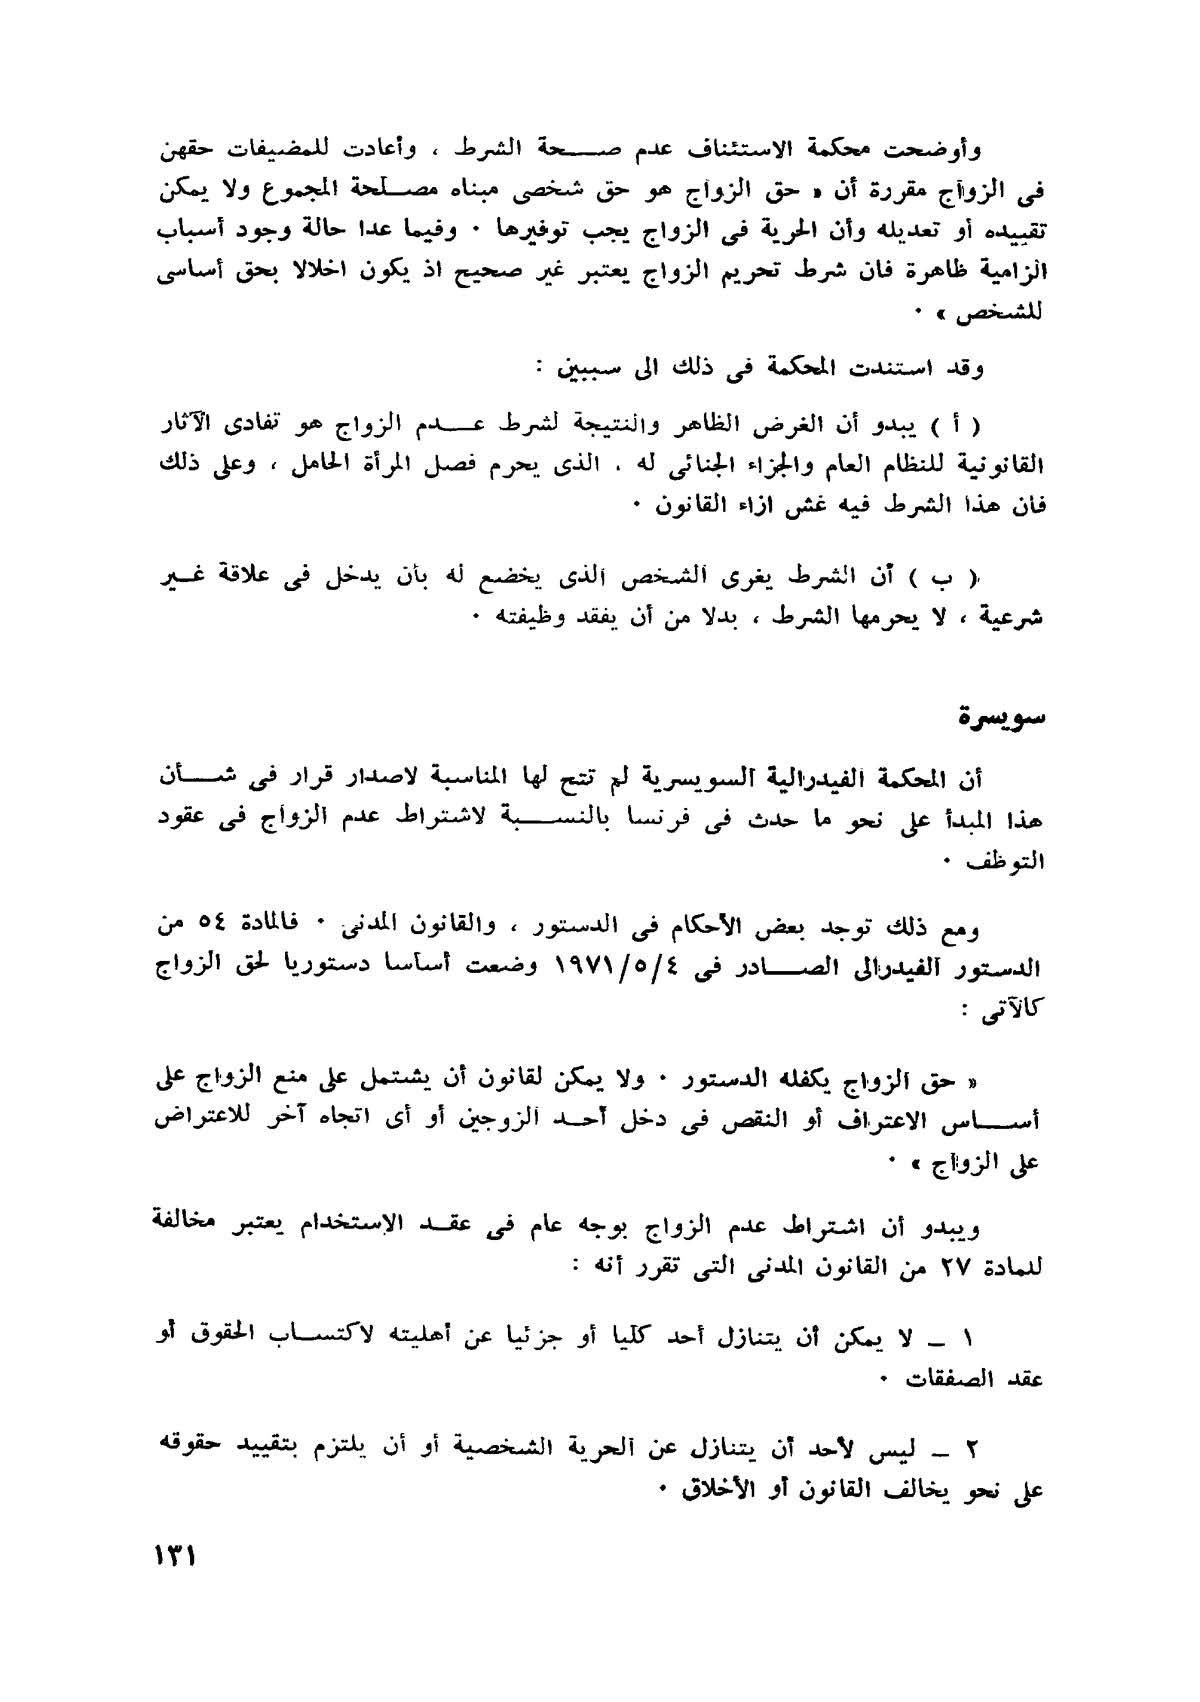 وأوضحت محكمة الاستئناف عدم صحة الشرط ، وأعادت للمضيفات حقهن
فى الزواج مقررة أن « حق الزواج هو حق شخصى مبناه مصلحة المجموع ولا يمكن
تقييده أو تعديله وأن الحرية فى الزواج يجب توفيرها · وفيما عدا حالة وجود أسباب
الزامية ظاهرة فان شرط تحريم الزواج يعتبر غير صحيح اذ يكون اخلالا بحق أساسى
للشخص » ·
وقد استندت المحكمة فى ذلك الى سببين :
( أ ) يبدو أن الغرض الظاهر والنتيجة لشرط عدم الزواج هو تفادى الآثار
القانونية للنظام العام والجزاء الجنائى له ، الذى يحرم فصل المرأة الحامل ، وعلى ذلك
فان هذا الشرط فيه غش ازاء القانون ·
( ب ) أن الشرط يغرى الشخص الذى يخضع له بأن يدخل فى علاقة غير
شرعية ، لا يحرمها الشرط ، بدلا من أن يفقد وظيفته ·
سويسرة
أن المحكمة الفيدرالية السويسرية لم تتح لها المناسبة لاصدار قرار فى شأن
هذا المبدأ على نحو ما حدث فى فرنسا بالنسبة لاشتراط عدم الزواج فى عقود
التوظف ·
ومع ذلك توجد بعض الأحكام فى الدستور ، والقانون المدنى · فالمادة ٥٤ من
الدستور الفيدرالى الصادر فى ١٩٧١/٥/٤ وضعت أساسا دستوريا لحق الزواج
كالآتى :
« حق الزواج يكفله الدستور · ولا يمكن لقانون أن يشتمل على منع الزواج على
أساس الاعتراف أو النقص فى دخل أحد الزوجين أو أى اتجاه آخر للاعتراض
على الزواج » ·
ويبدو أن اشتراط عدم الزواج بوجه عام فى عقد الاستخدام يعتبر مخالفة
للمادة ٢٧ من القانون المدنى التى تقرر أنه :
١ ــ لا يمكن أن يتنازل أحد كليا أو جزئيا عن أهليته لاكتساب الحقوق أو
عقد الصفقات ·
٢ ــ ليس لأحد أن يتنازل عن الحرية الشخصية أو أن يلتزم بتقييد حقوقه
على نحو يخالف القانون أو الأخلاق ·
١٣١